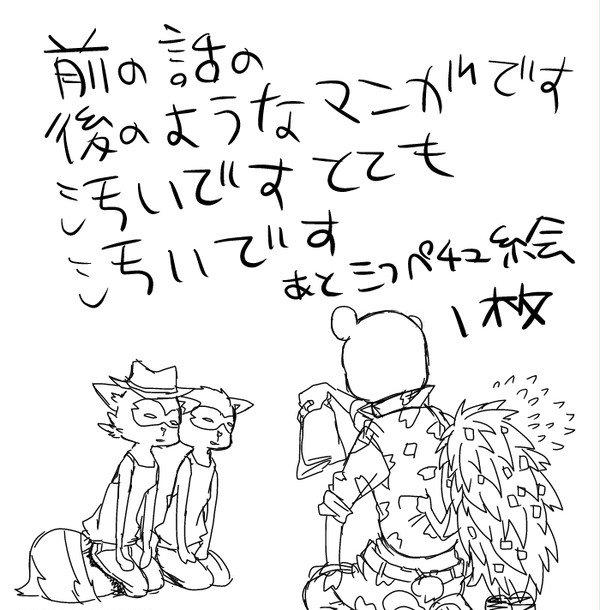 前の話の
後のようなマンガです
汚いですとても
汚いです
あとミつペチュ絵
1枚